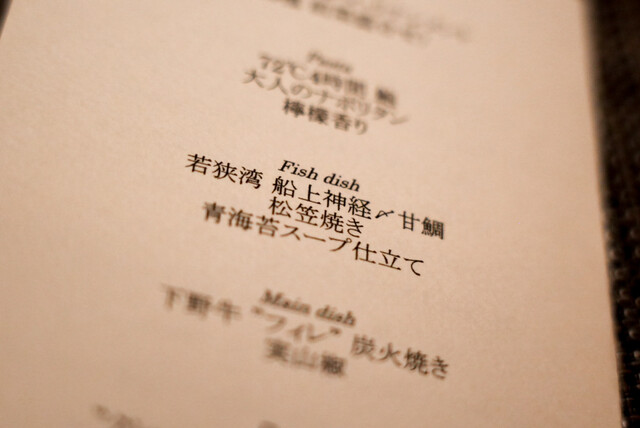 Pasta
72℃4時間 鮑
大人のナポリタン
檸檬香り
Fish dish
若狭湾 船上神経〆甘鯛
松笠焼き
青海苔スープ仕立て
Main dish
下野牛 “フィレ” 炭火焼き
実山椒